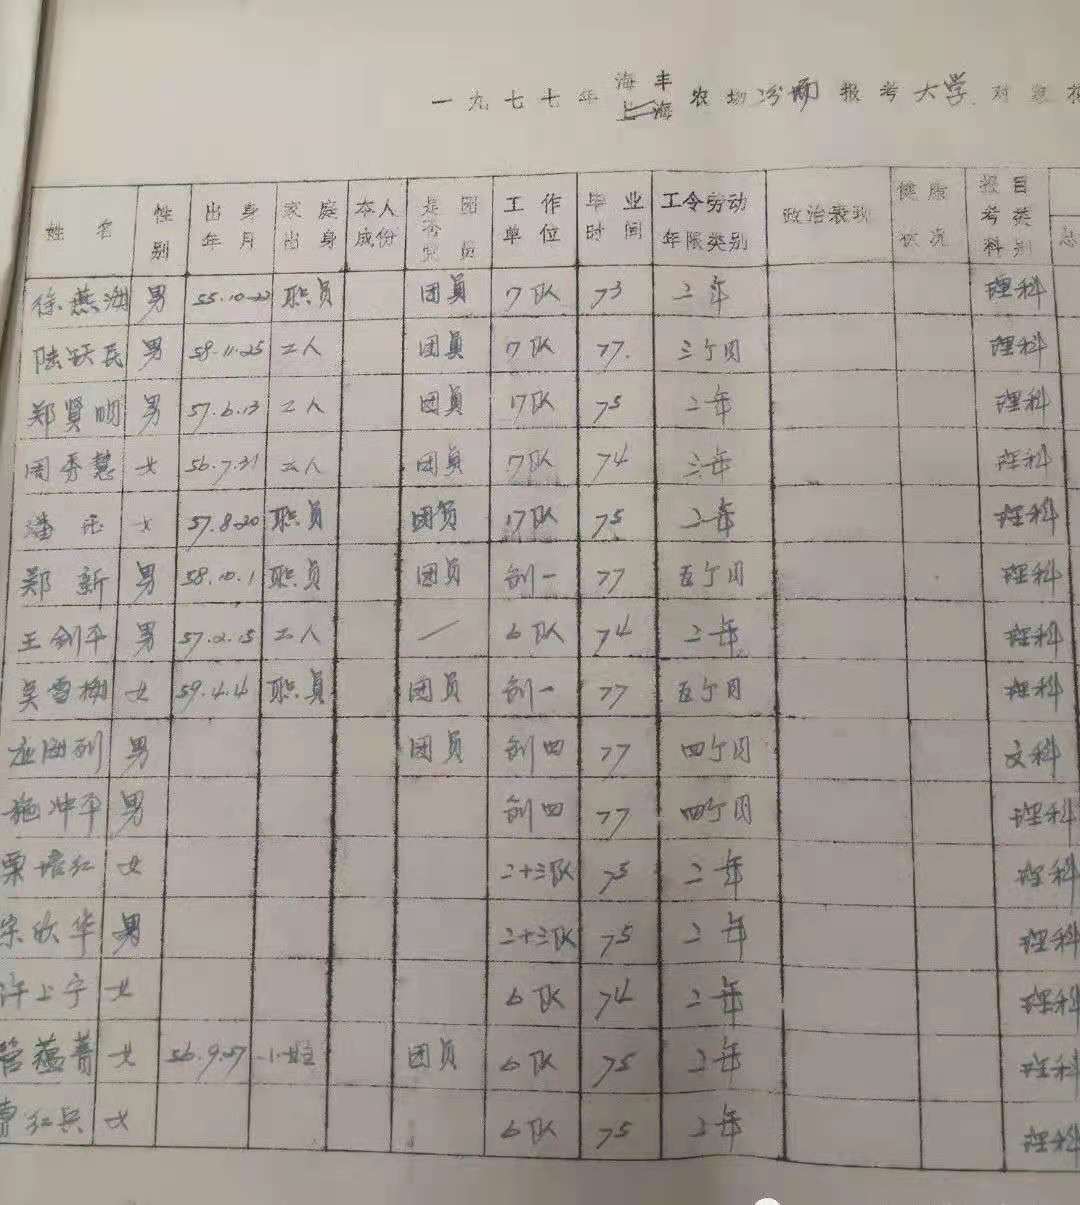 一九七七年 海丰 上海 农场 报考大学 对象
姓名 性别 出身年月 家庭出身 本人成份 是否团党员 工作单位 毕业时间 工令劳动年限类别 政治表现 健康状况 报考科目类别 总
徐燕 男 55.10.22 职员 团员 17队 73 二年 理科
陆跃民 男 58.11.25 工人 团员 17队 77. 三个月 理科
郑贤明 男 57.6.13 工人 团员 17队 75 二年 理科
周秀慧 女 56.7.31 工人 团员 17队 74 三年 理科
潘 女 57.8.20 职员 团员 17队 75 二年 理科
郑新 男 58.10.1 职员 团员 创一 77 五个月 理科
王剑平 男 57.2.15 工人 — 6队 74 二年 理科
吴雪梅 女 59.4.4 职员 团员 创一 77 五个月 理科
男 团员 创四 77 四个月 文科
施冲平 男 创四 77 四个月 理科
栗培红 女 二十三队 75 二年 理科
宋欣华 男 二十三队 75 二年 理科
许上宁 女 6队 74 二年 理科
管蕴菁 女 56.9.27 团员 6队 75 二年 理科
曹红兵 女 6队 75 二年 理科